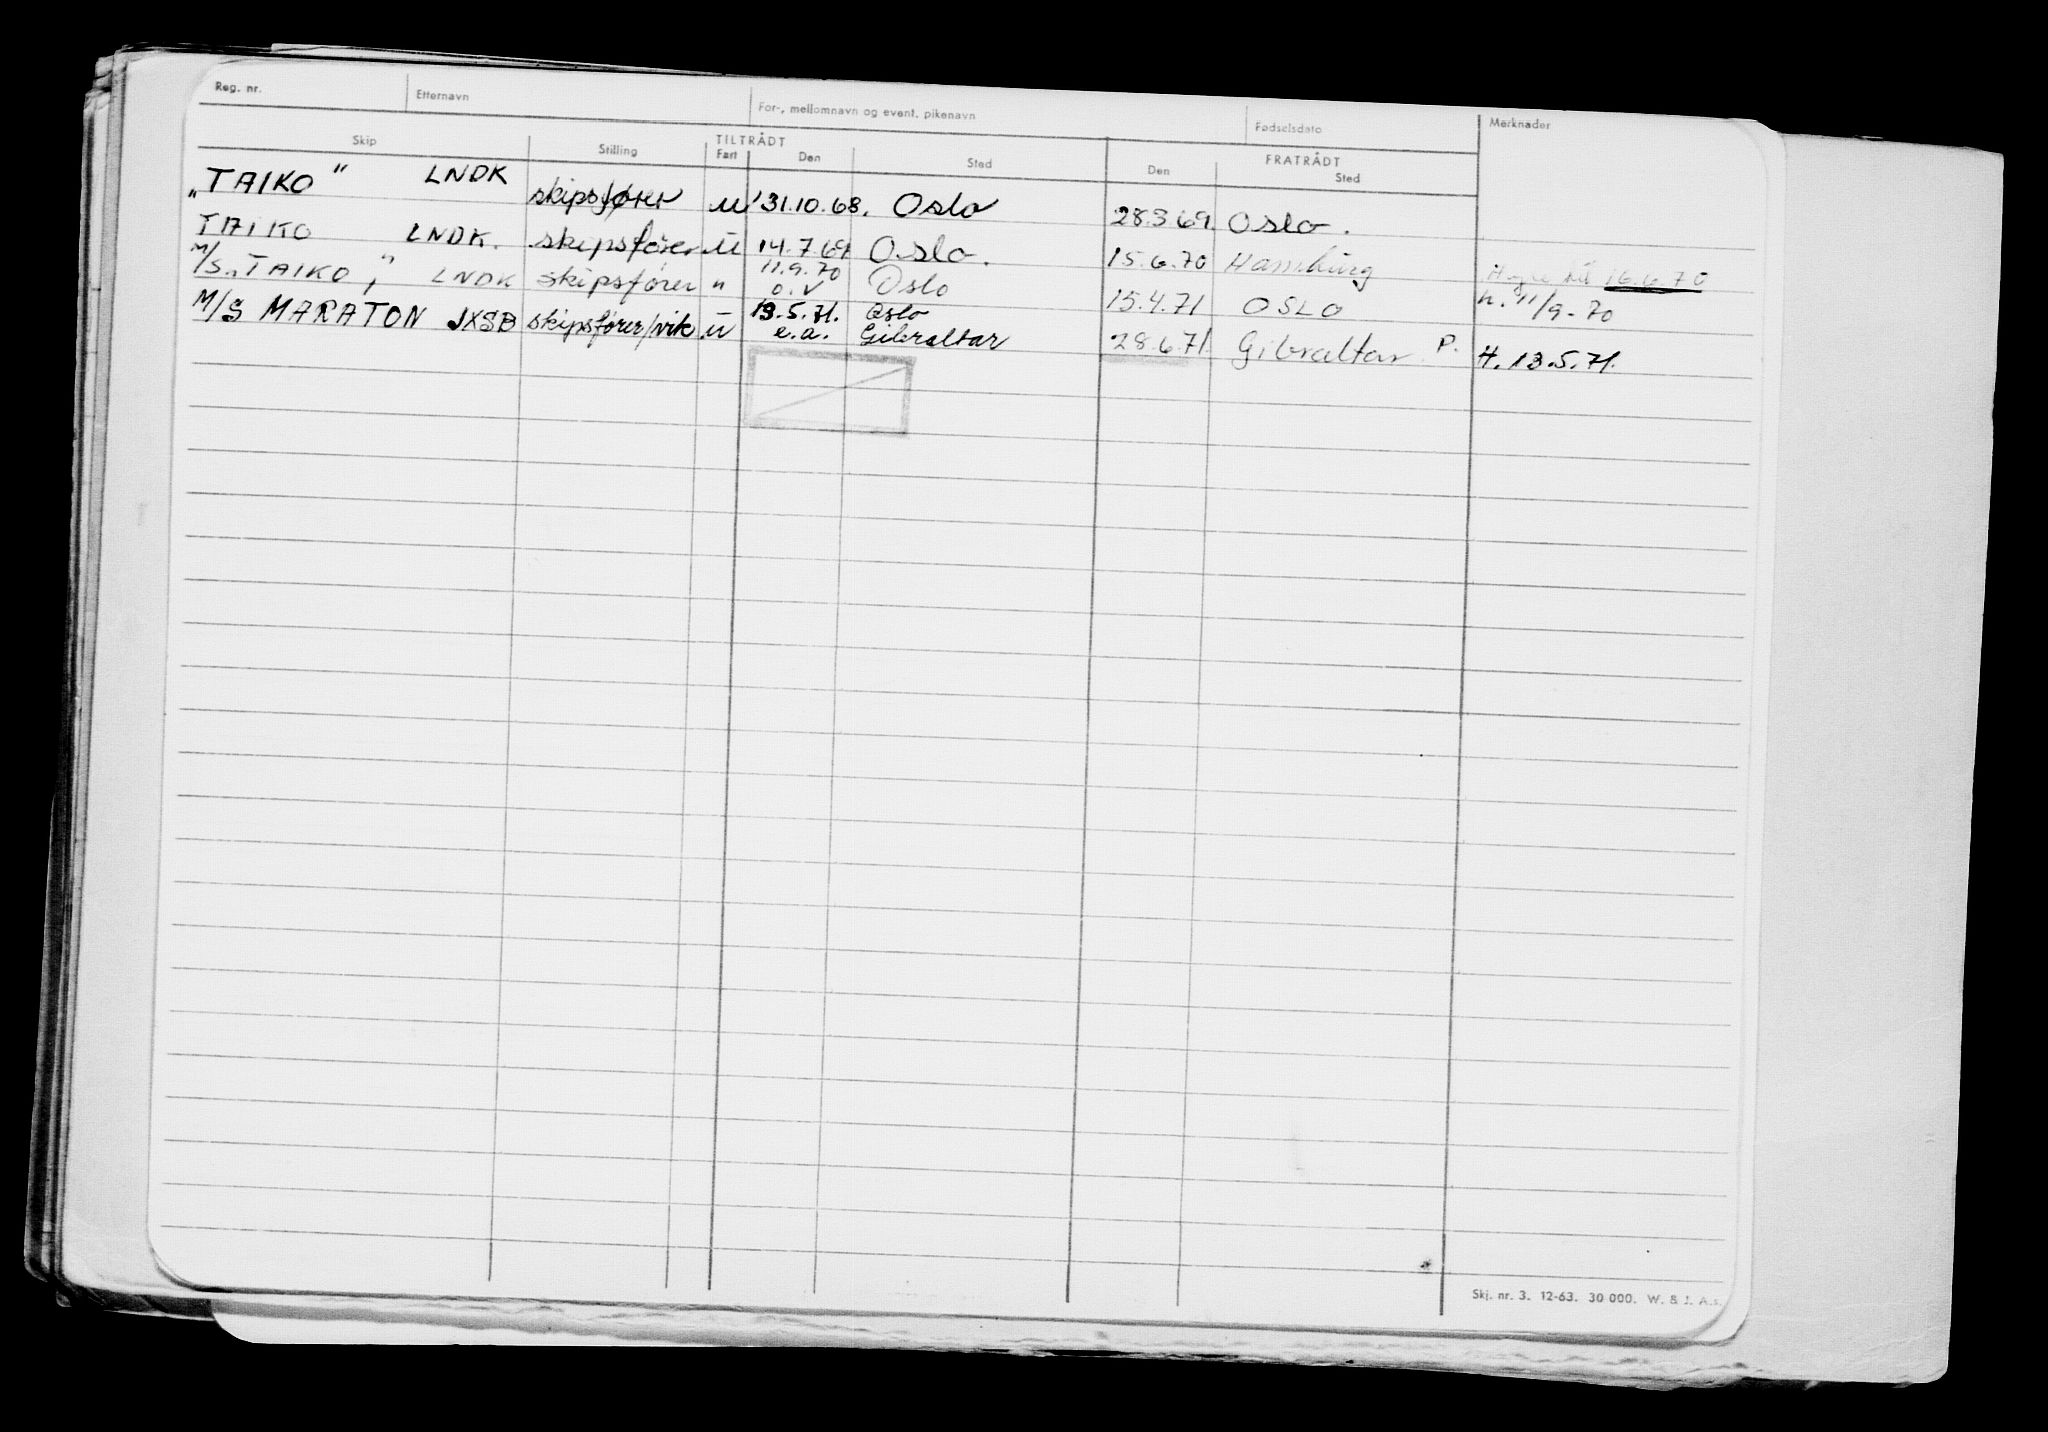 Reg. nr. Etternavn For-, mellomnavn og event. pikenavn Fødselsdato Merknader
Skip Stilling TILTRÅDT Fart Den Sted FRATRÅDT Den Sted
„TAIKO" LNDK skipsfører u 31.10.68. Oslo 28.3.69. Oslo.
TAIKO LNDK. skipsfører u 14.7.69 Oslo. 15.6.70 Hamburg 16.6.70
M/S „TAIKO" LNDK skipsfører " 11.9.70 o.v Oslo 15.4.71 OSLO h. 11/9-70
M/S MARATON JXSB skipsfører/vik. u 13.5.71. Oslo
e.a. Gibraltar 28.6.71. Gibraltar P. H. 13.5.71.
Skj. nr. 3. 12-63. 30 000. W. & J. A.s.